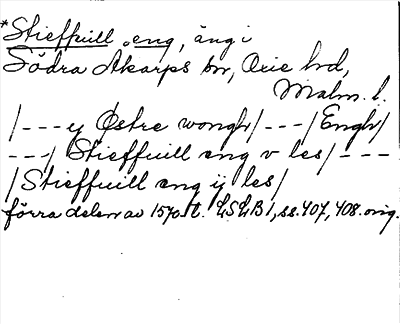 *Stieffuill eng, äng i
Södra Åkarps sn, Oxie hd,
Malm. l.
/---y Østre wongh/---/Engh/
---/ Stieffuill eng v les/---
/Stieffuill eng ij les/
förra delen av 1570-t. LSLB 1, ss. 407, 408. orig.